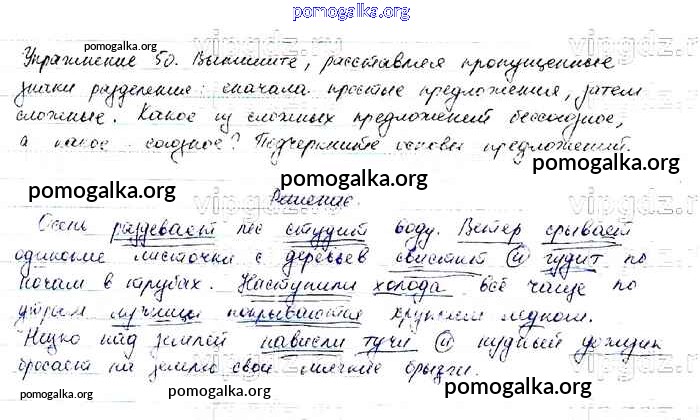 pomogalka.org
Упражнение 50. Выпишите, расставляя пропущенные
знаки разделения: сначала простые предложения, затем
сложные. Какое из сложных предложений бессоюзное,
а какое союзное? Подчеркните основы предложений.
pomogalka.org
pomogalka.org
pomogalka.org
vipgdz.ru
pomogalka.org
Решение.
Осень раздевает лес студит воду. Ветер срывает
одинокие листочки с деревьев свистит и гудит по
ночам в трубах. Наступили холода всё чаще по
утрам лужицы покрываются хрупким ледком.
Низко над землей нависли тучи и нудный дождик
бросает на землю свои мелкие брызги.
pomogalka.org
pomogalka.org
pomogalka.org